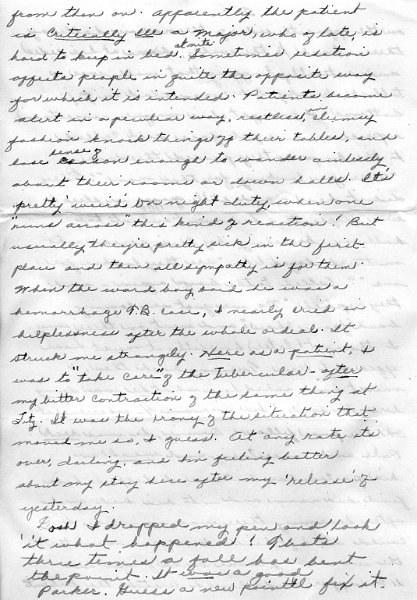 from then on. Apparently, the patient
is Critically Ill a Major, who of late, is
at nite.
hard to keep in bed. Sometimes sedation
affects people in quite the opposite way
for which it is intended. Patients become
alert in a peculiar way, restless, in clumsy
fashion knock things off their tables, and
sense of
lose reason enough to wander aimlessly
about their rooms or down halls. It's
'pretty' weird on night duty, when one
"runs across" this kind of reaction! But
usually they're pretty sick in the first
place and then all sympathy is for them.
When the ward boy said he was a
hemorrhage T.B. case, I nearly cried in
helplessness after the whole ordeal. It
struck me strangely. Here as a patient, I
was to "take care" of the tubercular - after
my bitter contraction of the same thing at
It was the irony of the situation that
moved me so, I guess. At any rate its
over, darling, and I'm feeling better
about my stay here after my 'release' of
yesterday.
Gosh I dropped my pen and look
at what happened! Thats
three times a fall has bent
the point. It was a good
Parker. Guess a new point'll fix it.